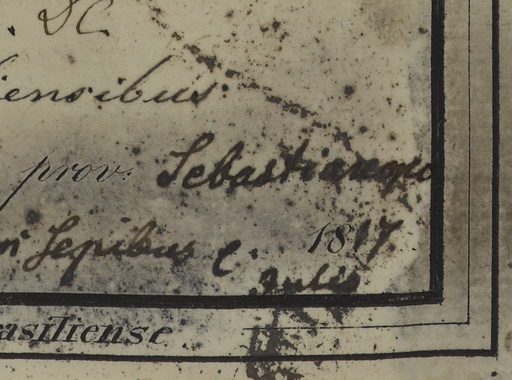 DC
iensibus
prov. Sebastianopo
in Sepibus c. 1817
Julio
asiliense